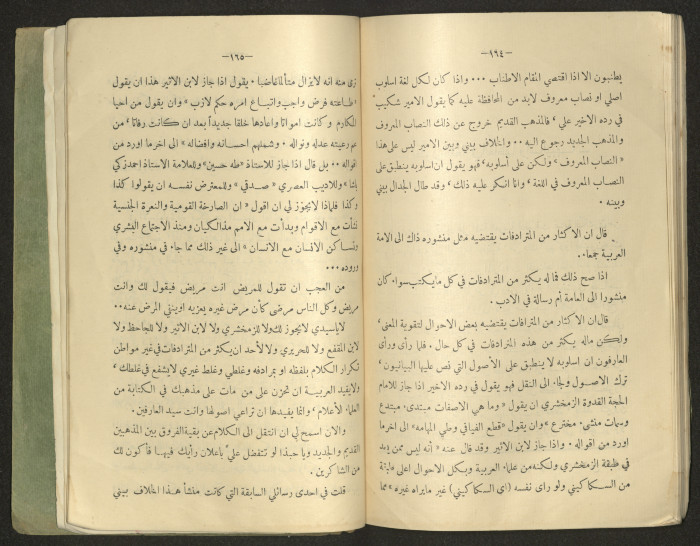 —١٦٤—
يطنبون الا اذا اقتضى المقام الاطناب ٠٠٠ واذا كان لكل لغة اسلوب
اصلي او نصاب معروف لابد من المحافظة عليه كما يقول الامير شكيب
في رده الاخير علي، فالمذهب القديم خروج عن ذلك النصاب المعروف
والمذهب الجديد رجوع اليه ٠٠ والخلاف بيني وبين الامير ليس على هذا
«النصاب المعروف» ولكن على أسلوبه، فهو يقول ان اسلوبه ينطبق على
النصاب المعروف في اللغة، وانا انكر عليه ذلك، وقد طال الجدال بيني
وبينه ٠
قال ان الاكثار من المترادفات يقتضيه مثل منشوره ذاك الى الامة
العربية جمعاء.
اذا صح ذلك فما له يكثر من المترادفات في كل ما يكتب سواء كان
منشورا الى العامة أم رسالة في الادب ٠
قال ان الاكثار من المترافات يقتضيه بعض الاحوال لتقوية المعنى،
ولكن ماله يكثر من هذه المترادفات في كل حال ٠ فلما رأى ورأى
العارفون ان اسلوبه لا ينطبق على الأصول التي نص عليها البيانيون،
ترك الاصول ولجأ الى النقل فهو يقول في رده الاخير اذا جاز للامام
الحجة القدوة الزمخشري ان يقول «وما هي الاصفات مبتدىء مبتدع
وسمات منشىء مخترع» وان يقول «قطع الفيافي وطي المهامه» الى اخرما
اورد من اقواله ٠ واذا جاز لابن الاثير وقد قال عنه «أنه ليس ممن يعد
في طبقة الزمخشري ولكنه من علماء العربية وبكل الاحوال اعلى
من السكاكيني ولو راى نفسه (اي السكاكيني) غير مايراه غيره» مما
—١٦٥—
زقى منه انه لايزال متألما غاضبا ٠ يقول اذا جاز لابن الاثير هذا ان يقول
«طاعته فرض واجب واتباع امره حكم لازب» وان يقول من احيا
المكارم وكانت امواتا واعادها خلقا جديداً بعد ان كانت رفاتا، من
عم رعيته عدله ونواله ٠ وشملهم احسانه وافضاله» الى اخرما اورد من
اقواله ٠٠ بل قال اذا جاز للاستاذ «طه حسين» وللعلامة الاستاذ احمد زكي
باشا» وللاديب العصري «صدقي» وللمعترض نفسه ان يقولوا كذا
وكذا فلماذا لايجوز لي ان اقول «ان الصارخة القومية والنعرة الجنسية
نشأت مع الاقوام وبدأت مع الامم مذ الكيان ومنذ الاجتماع البشري
وتساكن الانسان مع الانسان» الى غير ذلك مما جاء في منشوره وفي
ردوده ٠٠٠
من العجب ان تقول للمريض انت مريض فيقول لك وانت
مريض وكل الناس مرضى كأن مرض غيره يعزيه اوينفي المرض عنه ٠٠
لا ياسيدي لايجوز لك ولا للزمخشري ولا لابن الاثير ولا للجاحظ ولا
لابن المقفع ولا للحريري ولا لأحد ان يكثر من المترادفات في غير مواطن
تكرار الكلام بلفظه او بمرادفه وغلطي وغلط غيري لايشفع في غلطك،
ولا يفيد العربية ان تحزن على من مات على مذهبك في الكتابة من
العلماء الأعلام، وانما يفيدها ان تراعي اصولها وانت سيد العارفين ٠
والان اسمح لي ان انتقل الى الكلام عن بقية الفروق بين المذهبين
القديم والجديد ويا حبذا لو تتفضل عليّ باعلان رأيك فيها فأكون لك
من الشاكرين ٠
قلت في احدى رسائلي السابقة التي كانت منشأ هذا الخلاف بيني